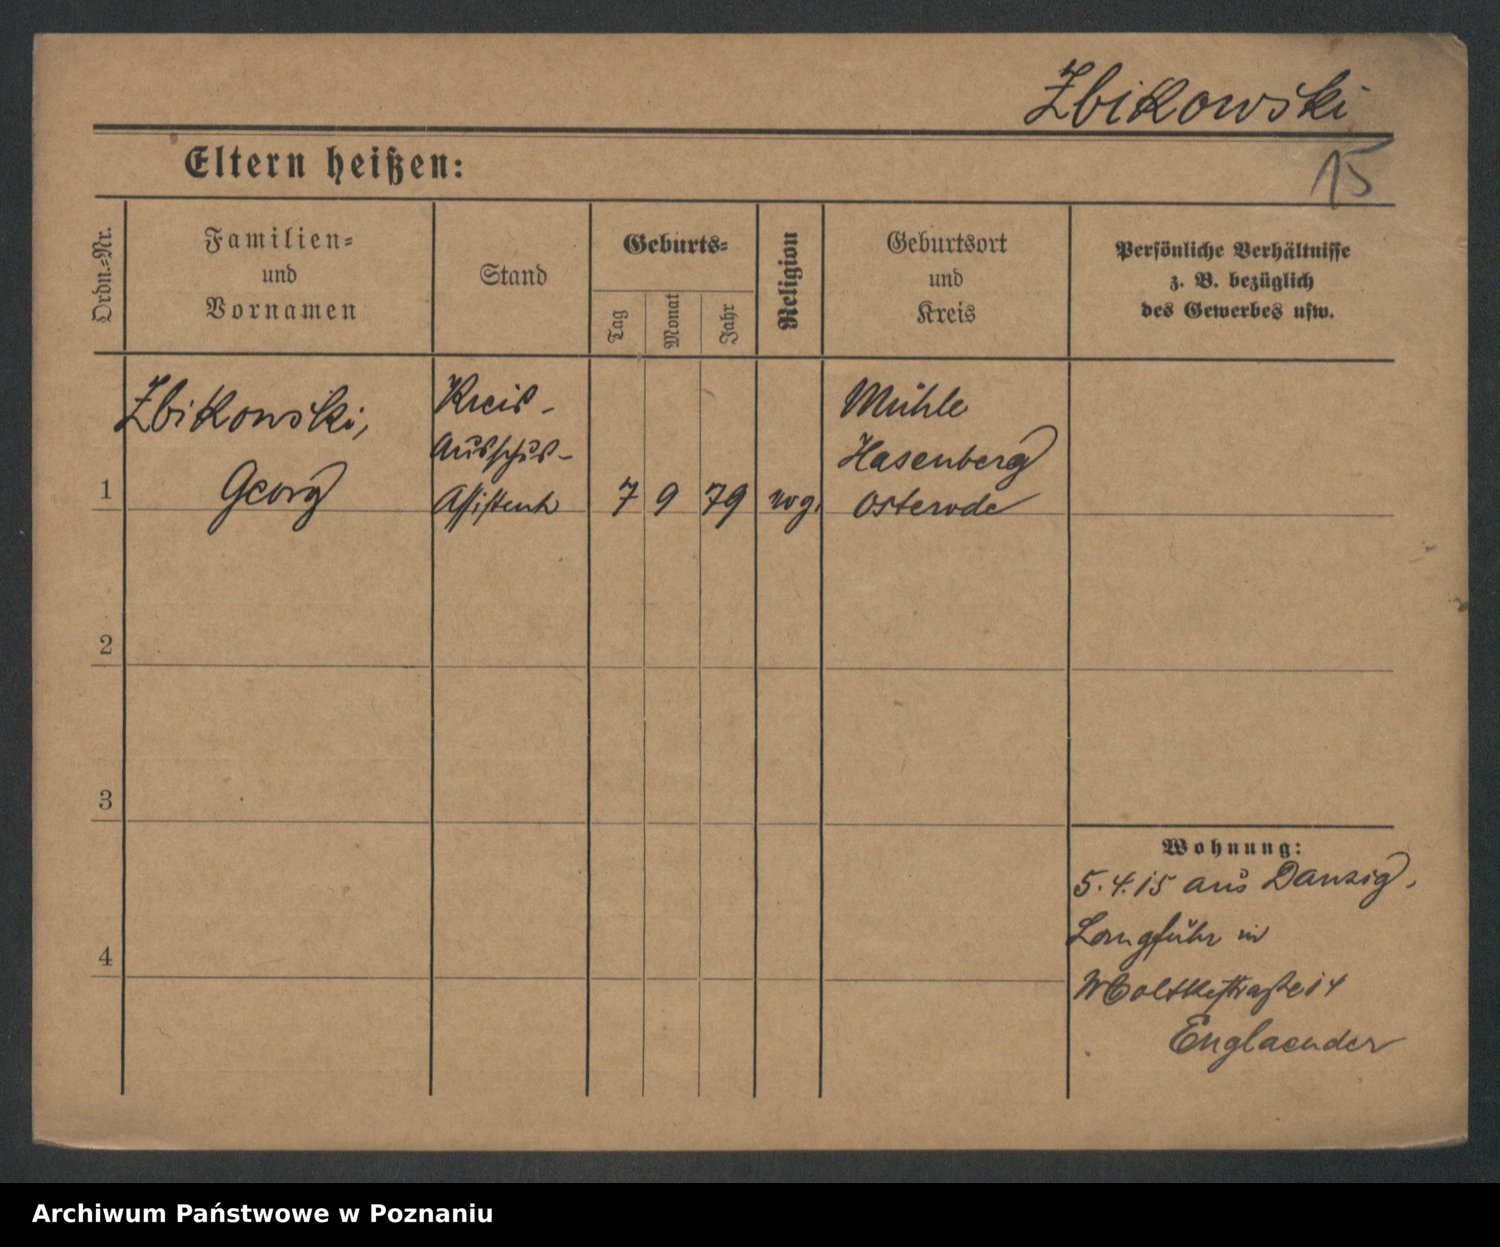 Zbikowski
15
Eltern heißen:
Ordn.-Nr.
Familien-
und
Vornamen
Stand
Geburts-
Tag
Monat
Jahr
Religion
Geburtsort
und
Kreis
Persönliche Verhältnisse
z. B. bezüglich
des Gewerbes usw.
1
Zbikowski,
Georg
Kreis-
Ausschus-
Assistent
7
9
79
Mühle
Hasenberg
Osterode
2
3
4
Wohnung:
5.4.15 aus Danzig,
Langfuhr in
Moltkestraße 14
Englaender
Archiwum Państwowe w Poznaniu